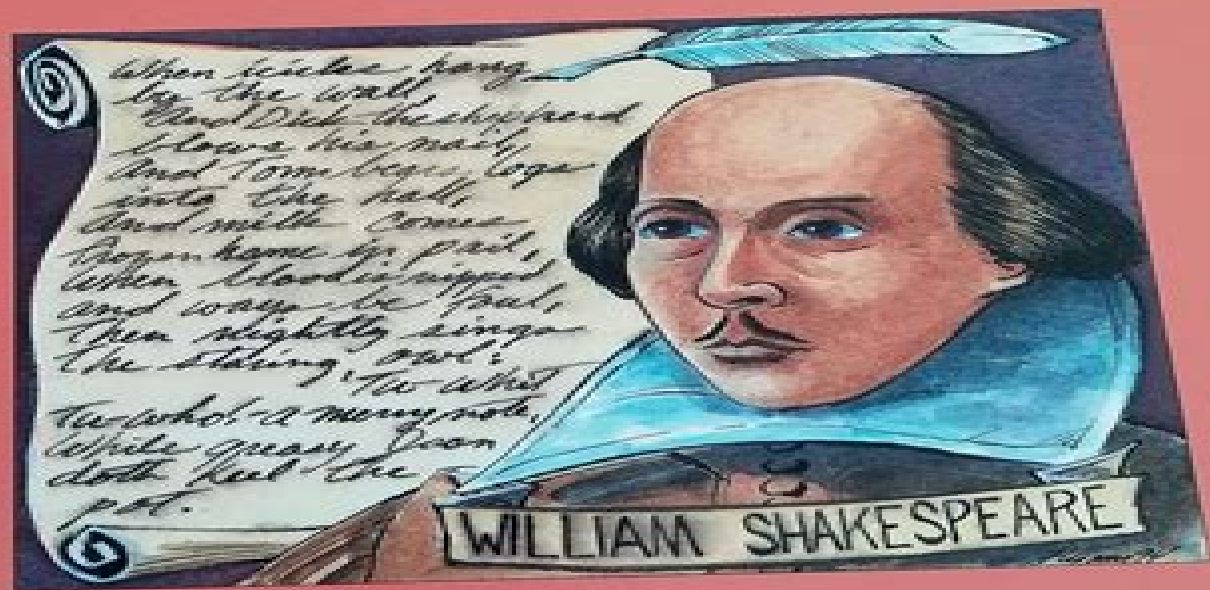 When icicles hang
by the wall
And Dick the shepherd
blows his nail,
And Tom bears logs
into the hall,
And milk comes
frozen home in pail,
When blood is nipped
and ways be foul,
Then nightly sings
the staring owl:
Tu-whit
Tu-who! - a merry note,
While greasy Joan
doth keel the
pot.
WILLIAM SHAKESPEARE